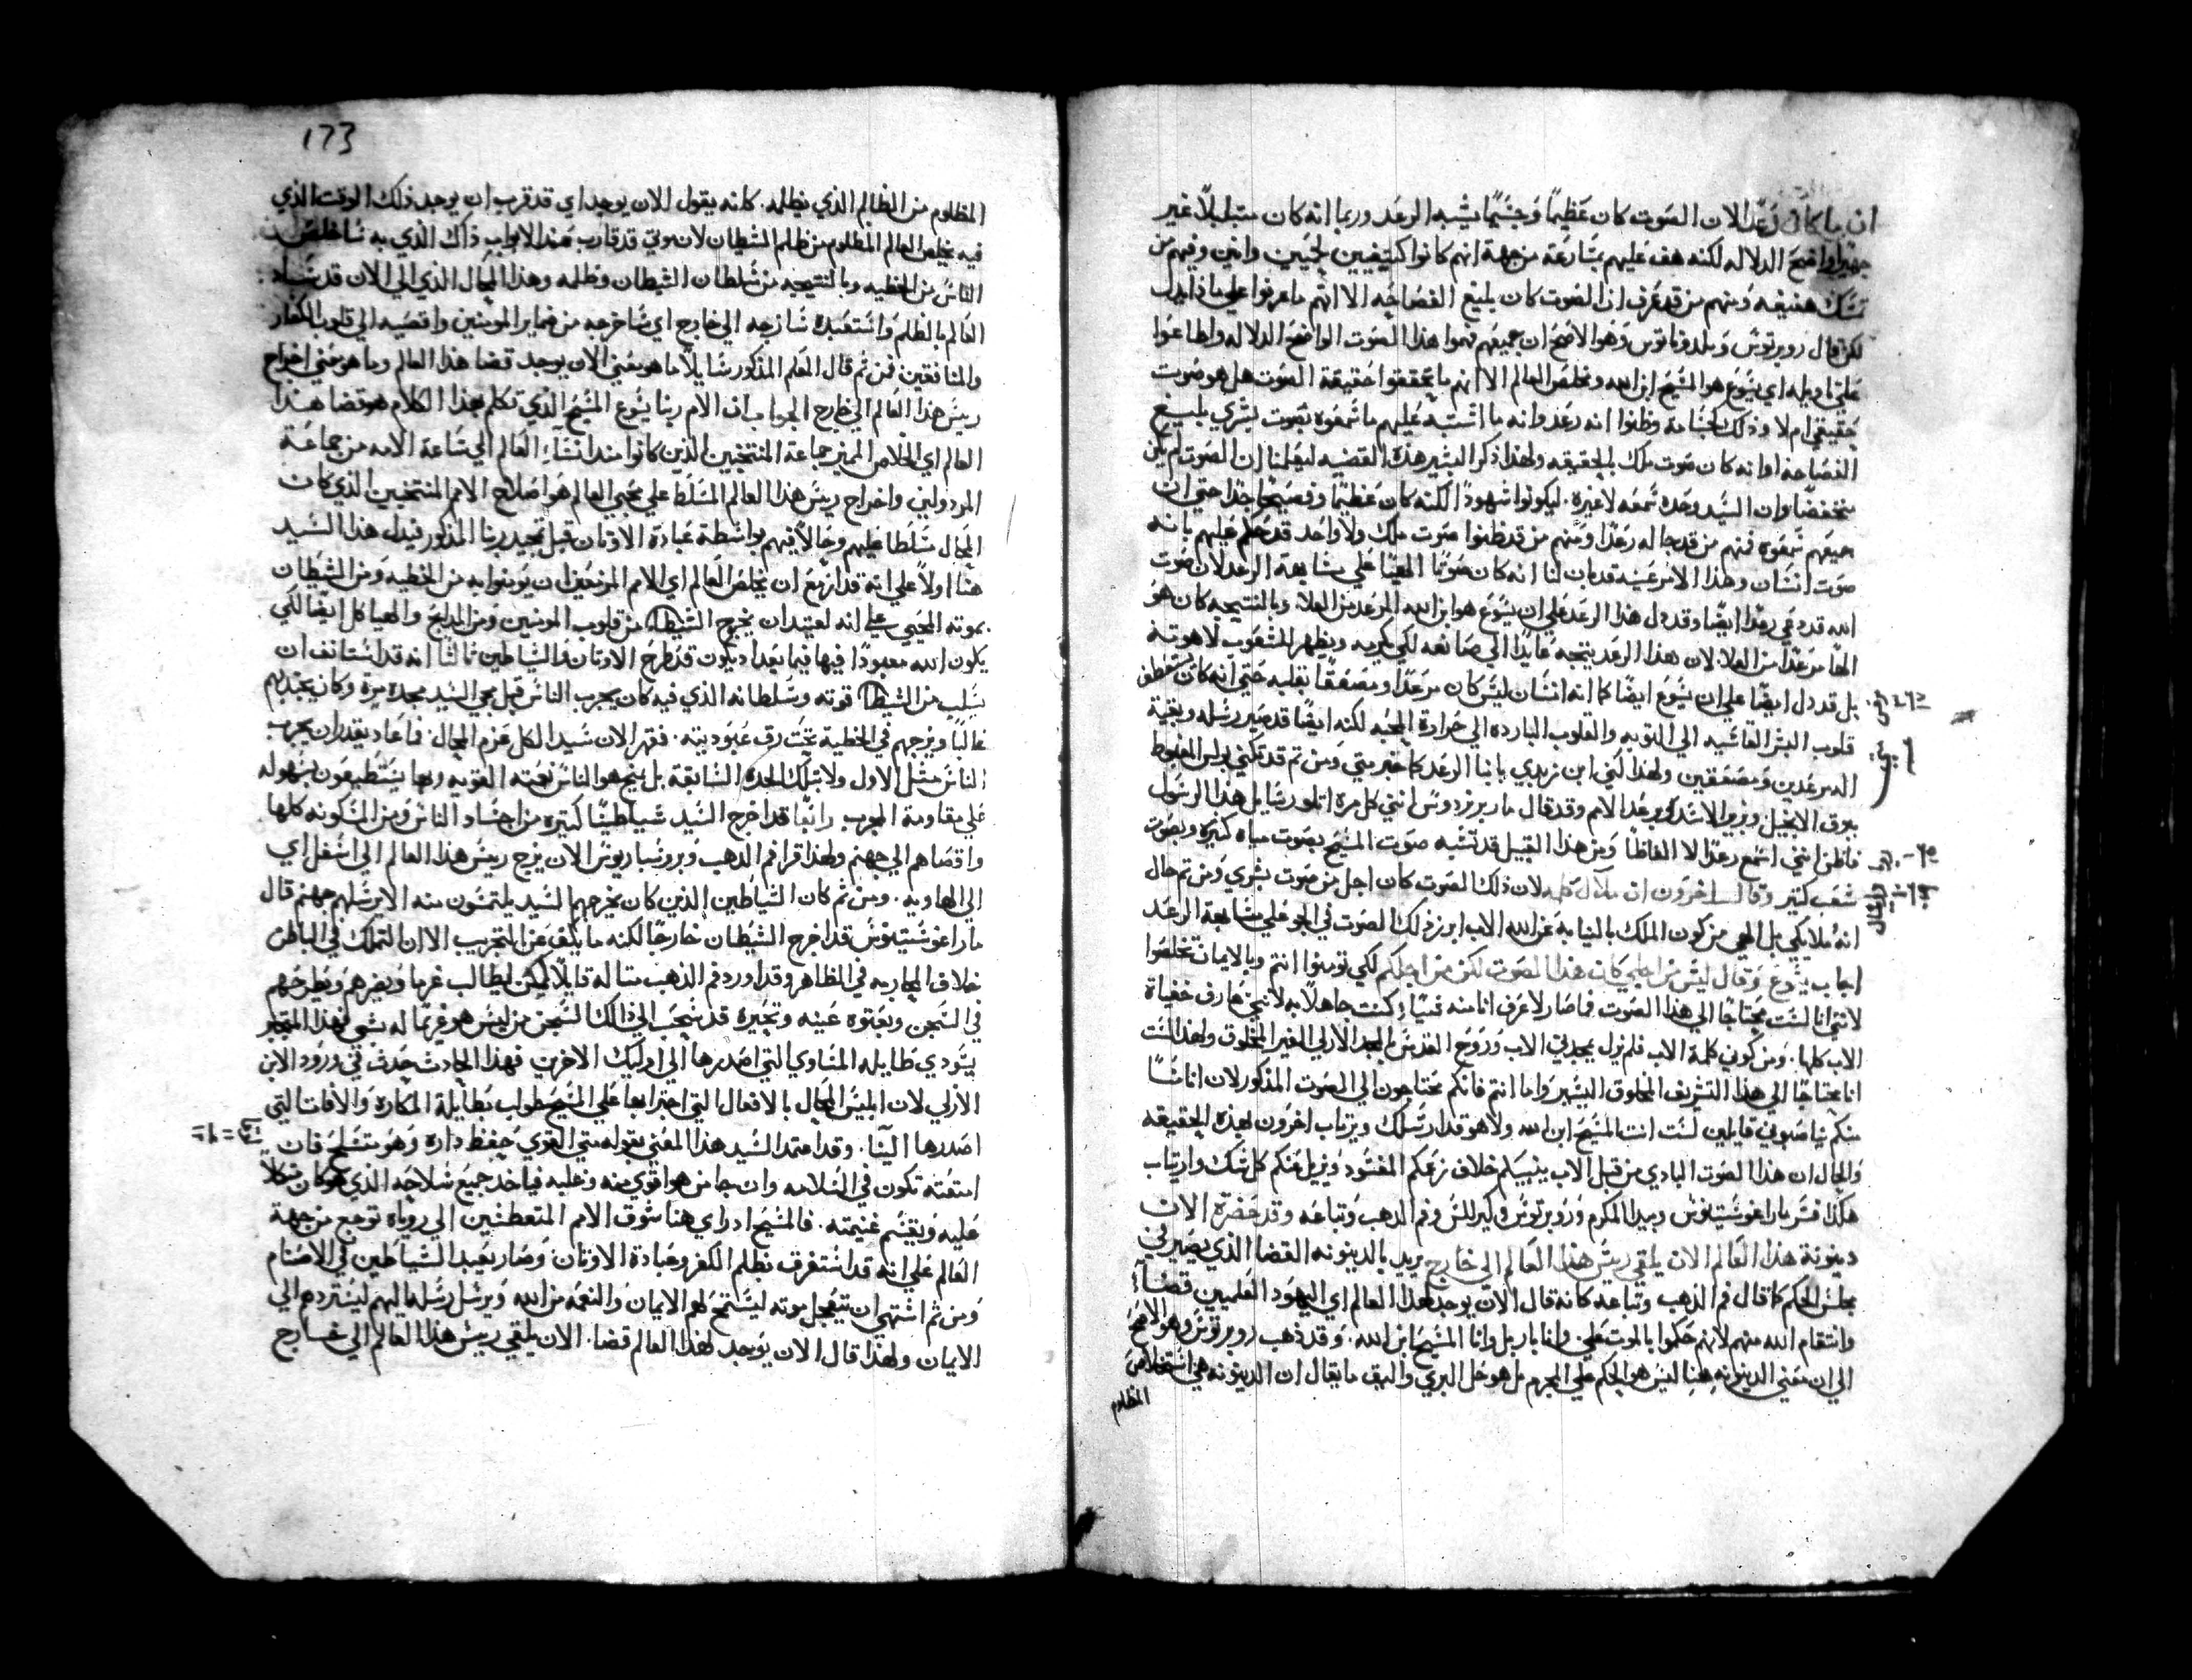 ان ما كان رعدًا لان الصوت كان عظيمًا وجسيمًا يشبه الرعد وربما انه كان متبلبلًا غير
جهيرًا واضح الدلاله لكنه هف عليهم بسارعة من جهة انهم كانوا كتيفيين لحيين وانين وفيهم من
تشك هنيهه ومنهم من قد عرف ان الصوت كان بليغ الفصاحه الا انهم ما عرفوا على ماذا يدل
لكن قال روبرتوس وملدوناتوس وهو الاصح ان جميعهم فهموا هذا الصوت الواضح الدلاله واطاعوا
على تاويله اي يسوع هو المسيح ابن الله ومخلص العالم الا انهم ما تحققوا حقيقة الصوت هل هو صوت
حقيقي ام لا وظنوا انه رعد وانه ما اشتبه عليهم ما سمعوه بصوت بشري بليغ
الفصاحه او انه كان صوت ملك بالحقيقه ولهذا ذكر البشير هذه القضيه ليعلمنا ان الصوت لم يكن
منخفضًا وان السيد وحده سمعه لا غيره. ليكونوا شهودًا لكنه كان عظيمًا وفصيحًا جدًا حتى ان
جميعهم سمعوه فمنهم من قد خاله رعدًا ومنهم من قد ظنوا صوت ملك ولا واحد قد حكم عليهم بانه
صوت انسان وهذا الامر عينه قد بان لنا انه كان صوتًا الهيًا على مشابهة الرعد لان صوت
الله قد دعي رعدًا ايضًا وقد دل هذا الرعد على ان يسوع هو ابن الله المرعد من العلا. وبالنتيجه كان هو
الهًا مرعدًا من العلا. لان هذا الرعد يتجه عايدًا الى صانعه لكي يكرمه ويظهر للشعوب لاهوته
بل قد دل ايضًا على ان يسوع ايضًا كما انه انسان ليس كان مرعدًا ومصعقًا بقلبه حتى انه كان يستعطف
قلوب البشر القاسيه الى التوبه والقلوب البارده الى حرارة المحبه لكنه ايضًا قد صير رسله وبقية
المرعدين ومصعقين ولهذا كني ابن زبدي بابنا الرعد كما خبر متى ومن تم قد تكني بولس المغبوط
ببوق الانجيل وبزو الاسد وبرعد الامم وقد قال ماريرزدوس انني كل مره اتلو رسايل هذا الرسول
فاظن انني اسمع رعدًا لا الفاظًا ومن هذا القبيل قد تشبه صوت المسيح بصوت مياه كثيره وبصوت
شعب كثير وقال اخرون ان ملاك كلمه لان ذلك الصوت كان اجل من صوت بشري ومن تم خال
انه ملايكي بل الهي من كون الملك بالنيابة عن الله الاب ابرز ذلك الصوت في الجو على مشابهة الرعد
اجاب يسوع وقال ليس من اجلي كان هذا الصوت لكن من اجلكم لكي تومنوا انتم وبالايمان تخلصوا
لانني انا لست محتاجًا الى هذا الصوت فما صار لاعرف انا منه شيًا كنت جاهلًا به لانني عارف خفياة
الاب كلها. ومن كوني كلمة الاب فلم نزل يمجدني الاب وروح القدس بالمجد الازلي الغير المخلوق ولهذا لست
انا محتاجًا الى هذا التشريف المخلوق اليسير واما انتم فانكم محتاجون الى الصوت المذكور لان اناسًا
منكم يناصبوني قايلين لست انت المسيح ابن الله ولا هو قد ارسلك ويرتاب اخرون بهذه الحقيقه
والحال ان هذا الصوت البادي من قبل الاب ينبيكم خلاف زعمكم المفسود ويزيل عنكم كل شك وارتياب
هكذا فسر مار اغوستينوس وبيدا المكرم وروبرتوس وكيرللس وفم الدهب وتباعه وقد حضرة الان
دينونة هذا العالم الان يلقى ريس هذا العالم الى خارج يريد بالدينونه القضا الذي يصير في
مجلس الحكم كما قال فم الذهب وتباعه كانه قال الان يوجد لهذا العالم اي اليهود الغلميين قضاءً
وانتقام الله منهم لانهم حكموا بالموت علي وانا بار بل وانا المسيح ابن الله. وقد ذهب روبرتوس وهو الاصح
الى ان معني الدينونه هنا ليس هو الحكم على المجرم بل هو حل البري واليق ما يقال ان الدينونه هي استخلاص
المظلوم
173
المظلوم من الظالم الذي يظلمه. كانه يقول الان يوجد اي قد قرب ان يوجد ذلك الوقت الذي
فيه يخلص العالم المظلوم من ظلم الشيطان لان موتي قد قارب عند الابواب ذاك الذي به ساخلص
الناس من الخطيه وبالنتيجيه من سلطان الشيطان وظلمه وهذا المحال الذي الى الان قد ساد
العالم بالظلم واستعبده سازجه الى خارج اي ساخرجه من ضماير المومنين واقصيه الى قلوب الكفار
والمنافقين فمن ثم قال المعلم المذكور سايلًا ما هو معني الان يوجد قضا هذا العالم وما هو معني اخراج
ريس هذا العالم الى خارج الجواب ان الام ربنا يسوع المسيح الذي تكلم بهذا الكلام هو قضا هذا
العالم اي الخلاص المميز جماعة المنتخبين الذين كانوا منذ انشاء العالم الى ساعة الامه من جماعة
المرذولين واخراج ريس هذا العالم المسلط على محبي العالم هو اصلاح الامم المنتخبين الذي كان
المحال مسلطا عليهم وحالًا فيهم بواسطة عبادة الاوثان قبل تمجيد ربنا المذكور فيدل هذا السيد
هنا اولًا على انه قد ازمع ان يخلص العالم اي الامم المزمعين ان يومنوا به من الخطيه ومن الشيطان
بموته المحيي لانه لعتيد ان يخرج الشيطان من قلوب المومنين ومن المذابح والهياكل ايضًا لكي
يكون الله معبودًا فيها فيما بعد اد يكون قد طرح الاوثان والشياطين ثالثا انه قد استانف ان
يسلب من الشيطان قوته وسلطانه الذي فيه كان يجرب الناس قبل مجي السيد بحده مرة وكان يجتذبهم
غالبًا ويزجهم في الخطية تحت رق عبوديته. فقهر الان سيد الكل عزم المحال. فما عاد يقدر ان يجرب
الناس مثل الاول ولا بتلك الحده السابقة بل يمنح هو الناس نعمته القويه وبها يستطيعون بسهوله
على مقاومة المجرب رابعًا قد اخرج السيد شياطينًا كثيره من اجساد الناس ومن المسكونه كلها
واقصاهم الى جهنم ولهذا قرا فم الدهب وبروسباريوس الان يزج ريس هذا العالم الى اسفل اي
الى الهاويه. ومن ثم كان الشياطين الذين كان يخرجهم السيد يلتمسون منه الا يرسلهم جهنم قال
مار اغوستينوس قد اخرج الشيطان خارجًا لكنه ما يكف عن التجريب الا ان التملك في الباطن
خلاف المحاربه في الظاهر وقد اورد فم الذهب مثاله قايلًا كمن يطالب غرما ويضرهم ويطرحهم
في السجن وبعتوه عينه وتجبره قد سحب الى ذلك السجن من ليس هو غريمًا له بشي فهذا المتجبر
يتودي طايله المساوي التي اصدرها الى اوليك الاخرين فهذا الحادث حدث في ورود الابن
الازلي لان ابليس المحال بالافعال التي اجترا بها على المسيح طولب بطايلة المكاره والافات التي
اصدرها الينا. وقد اعتمد السيد هذا المعني بقوله متى القوي حفظ داره وهو متسلح فان
امتعته تكون في السلامه وان جا من هو اقوي منه وغلبه فياخد جميع سلاحه الذي هو كان متكلًا
عليه ويقسم غنيمته. فالمسيح اد راي هنا شوق الامم المتعطشين الى روياه توجع من جهة
العالم على انه قد استغرق بظلم الكفر وعبادة الاوثان وصار يعبد الشياطين في الاصنام
ومن ثم اشتهي ان يتعجل موته ليستمح لهم الايمان والنعمه من الله ويرسل رسله اليهم ليستردهم الى
الايمان ولهذا قال الان يوجد لهذا العالم قضا. الان يلقي ريس هذا العالم الى خارج